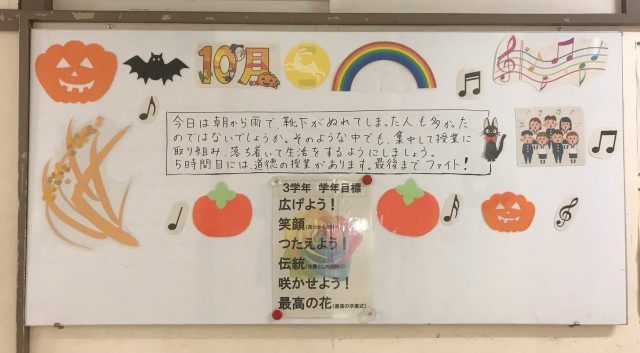 10月
今日は朝から雨で、靴下がぬれてしまった人も多かった
のではないでしょうか。そのような中でも、集中して授業に
取り組み、落ち着いて生活をするようにしましょう。
5時間目には、道徳の授業があります。最後までファイト！
3学年 学年目標
広げよう！
笑顔
つたえよう！
伝統
咲かせよう！
最高の花(最高の卒業式)